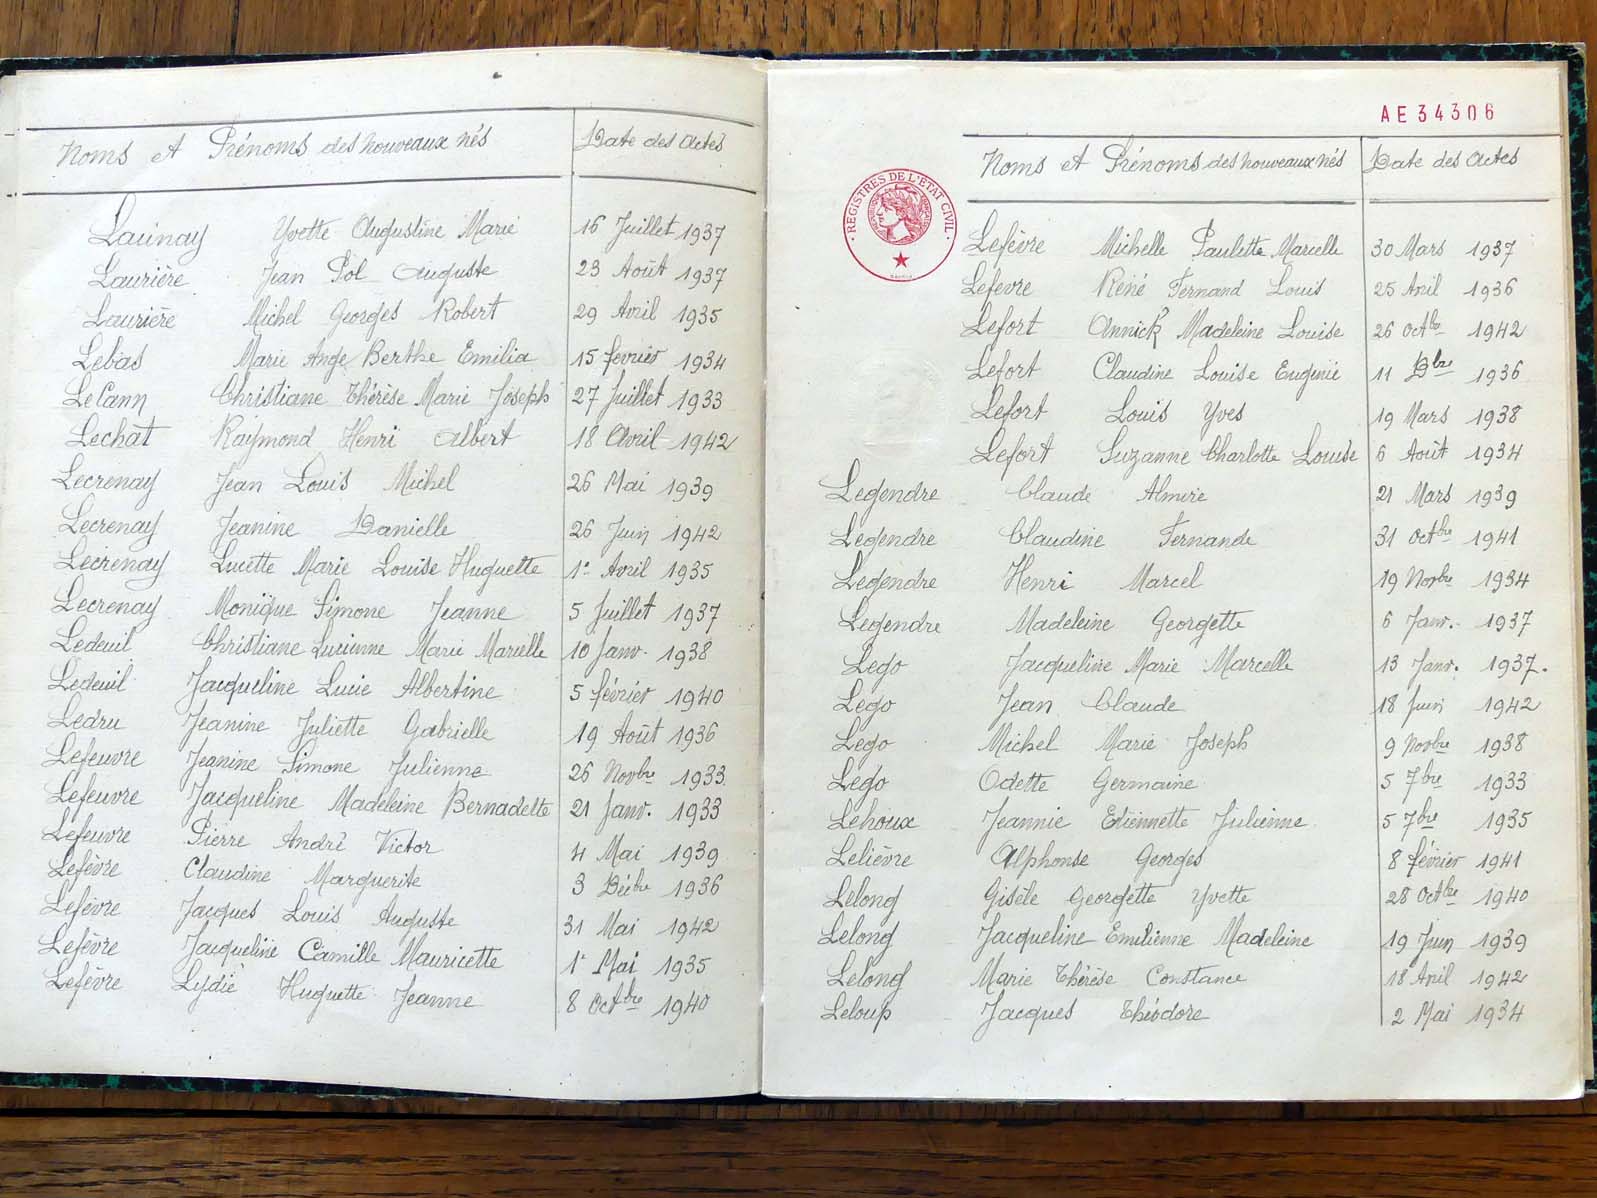 Noms et Prénoms des nouveaux nés Date des actes
Launay Yvette Augustine Marie 16 Juillet 1937
Laurière Jean Pol Auguste 23 Août 1937
Laurière Michel Georges Robert 29 Avril 1935
Lebas Marie Ange Berthe Emilia 15 février 1934
LeCann Christiane Thérèse Marie Joseph 27 Juillet 1933
Lechat Raymond Henri Albert 18 Avril 1942
Lecrenay Jean Louis Michel 26 Mai 1939
Lecrenay Jeanine Danielle 26 Juin 1942
Lecrenay Lucette Marie Louise Huguette 1er Avril 1935
Lecrenay Monique Simone Jeanne 5 Juillet 1937
Ledeuil Christiane Lucienne Marie Marcelle 10 Janv. 1938
Ledeuil Jacqueline Lucie Albertine 5 février 1940
Ledru Jeanine Juliette Gabrielle 19 Août 1936
Lefeuvre Jeanine Simone Julienne 26 Novbre 1933
Lefeuvre Jacqueline Madeleine Bernadette 21 Janv. 1933
Lefeuvre Pierre André Victor 4 Mai 1939
Lefèvre Claudine Marguerite 3 Décbre 1936
Lefèvre Jacques Louis Auguste 31 Mai 1942
Lefèvre Jacqueline Camille Mauricette 1er Mai 1935
Lefèvre Lydie Huguette Jeanne 8 Octbre 1940
AE34306
REGISTRES DE L'ÉTAT CIVIL
Noms et Prénoms des nouveaux nés Date des actes
Lefèvre Michelle Paulette Marcelle 30 Mars 1937
Lefevre René Fernand Louis 25 Avril 1936
Lefort Annick Madeleine Louise 26 Octbre 1942
Lefort Claudine Louise Eugénie 11 Dbre 1936
Lefort Louis Yves 19 Mars 1938
Lefort Suzanne Charlotte Louise 6 Août 1934
Legendre Claude Almire 21 Mars 1939
Legendre Claudine Fernande 31 Octbre 1941
Legendre Henri Marcel 19 Novbre 1934
Legendre Madeleine Georgette 6 Janv. 1937
Lego Jacqueline Marie Marcelle 13 Janv. 1937.
Lego Jean Claude 18 Juin 1942
Lego Michel Marie Joseph 9 Novbre 1938
Lego Odette Germaine 5 7bre 1933
Lehoux Jeannie Etiennette Julienne 5 7bre 1935
Lelièvre Alphonse Georges 8 février 1941
Lelong Gisèle Georgette Yvette 28 Octbre 1940
Lelong Jacqueline Emilienne Madeleine 19 Juin 1939
Lelong Marie Thérèse Constance 18 Avril 1942
Leloup Jacques Théodore 2 Mai 1934